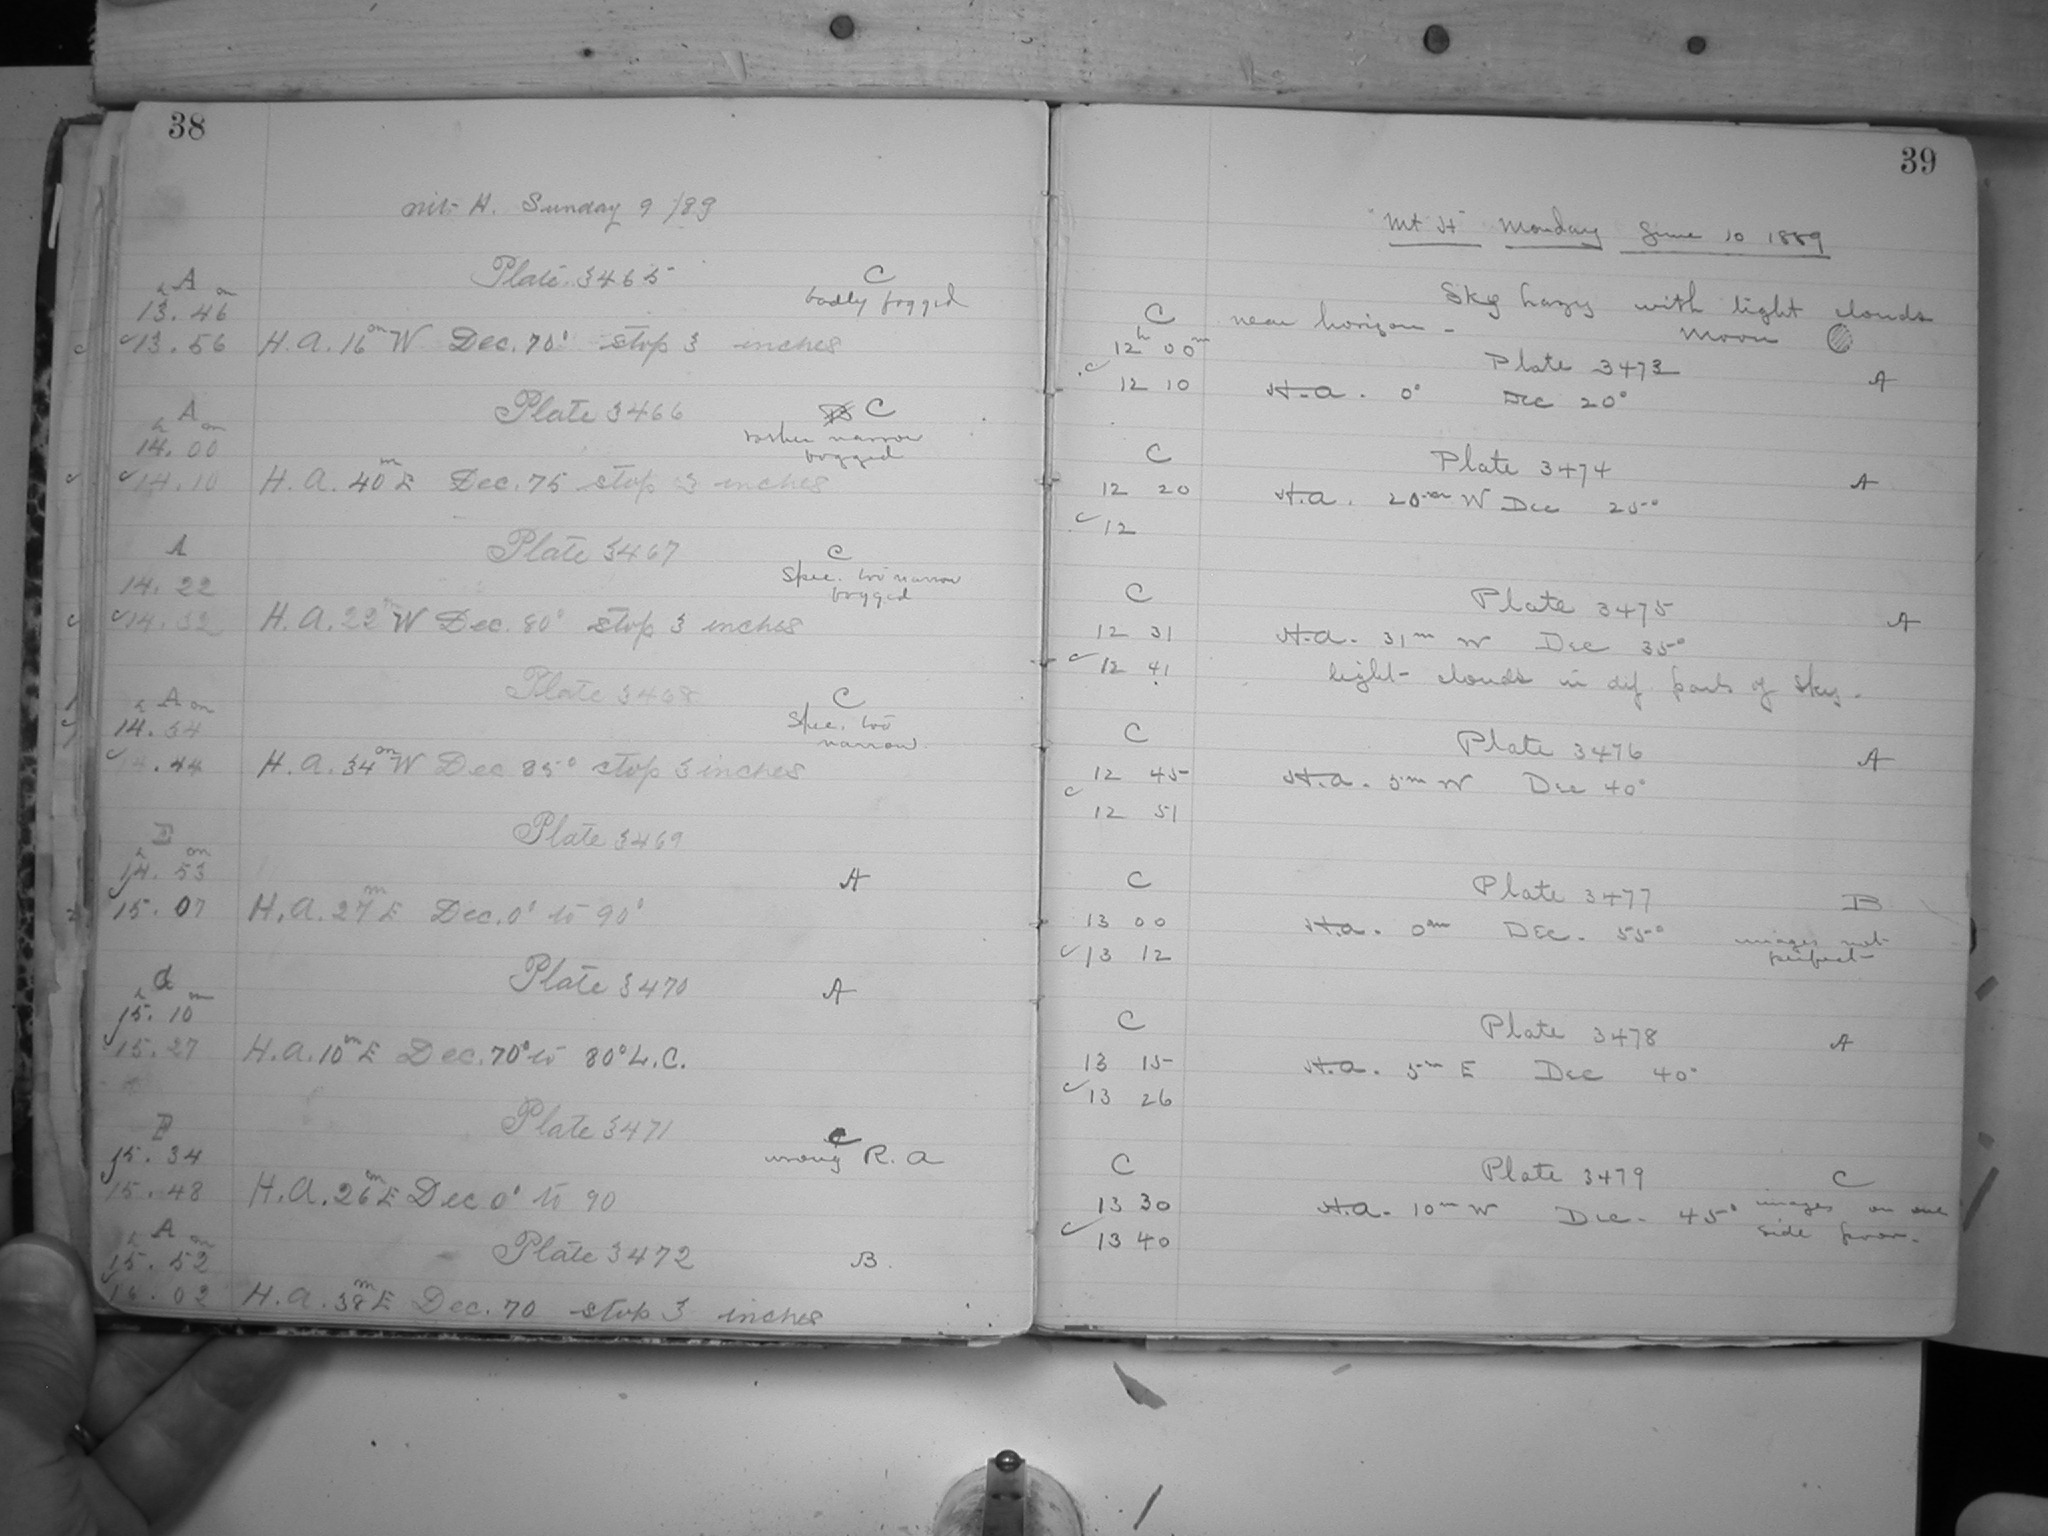 38
Mt. H. Sunday 9 /89
A Plate 3465 C
h m
13. 46 badly fogged
13. 56 H.A. 16m W Dec. 70° stop 3 inches
A Plate 3466 C
h m
14. 00 rather narrow
fogged
14. 10 H.A. 40m E Dec. 75 stop 3 inches
A Plate 3467 C
14. 22 Spec. too narrow
fogged
14. 32 H.A. 22m W Dec. 80° stop 3 inches
A Plate 3468 C
h m
14. 34 Spec. too
narrow
14. 44 H.A. 34m W Dec 85° stop 3 inches
E Plate 3469
h m
14. 53 A
15. 07 H.A. 27m E Dec. 0° to 90°
Plate 3470 A
h m
15. 10
15. 27 H.A. 10m E Dec. 70° to 80° L.C.
Plate 3471 C
15. 34 wrong R.A
15. 48 H.A. 26m E Dec 0° to 90
A Plate 3472 B
h m
15. 52
16. 02 H.A. 38m E Dec. 70 stop 3 inches
39
"Mt H" Monday June 10 1889
Sky hazy with light clouds
C near horizon - Moon
12h 00m Plate 3473 A
12 10 H.A. 0° Dec 20°
C Plate 3474 A
12 20 H.A. 20m W Dec 25°
12
C Plate 3475 A
12 31 H.A. 31m W Dec 35°
12 41 light clouds in dif. parts of sky.
C Plate 3476 A
12 45 H.A. 5m W Dec 40°
12 51
C Plate 3477 B
13 00 H.A. 0m Dec. 55° images not
13 12 perfect
C Plate 3478 A
13 15 H.A. 5m E Dec 40°
13 26
C Plate 3479 C
13 30 H.A. 10m W Dec. 45° images on one
13 40 side poor.